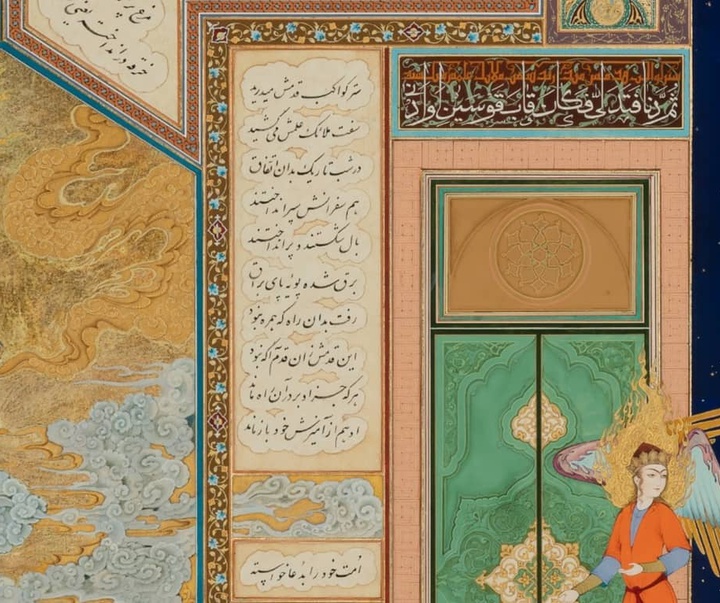 خرقه درانداخته یعنی
ثم دنا فتدلی فکان قاب قوسین او ادنی
ستر کواکب قدمش میدرید
سفت ملائک علمش می کشید
درشب تاریک بدان اتفاق
هم سفرانش سپر انداختند
بال شکستند و پر انداختند
برق شده پویه پای براق
رفت بدان راه که همره نبود
این قدمش زان قدم آگه نبود
هرکه جز او بر در آن راز ماند
او هم از آمیزش خود باز ماند
امت خود را بدعا خواسته